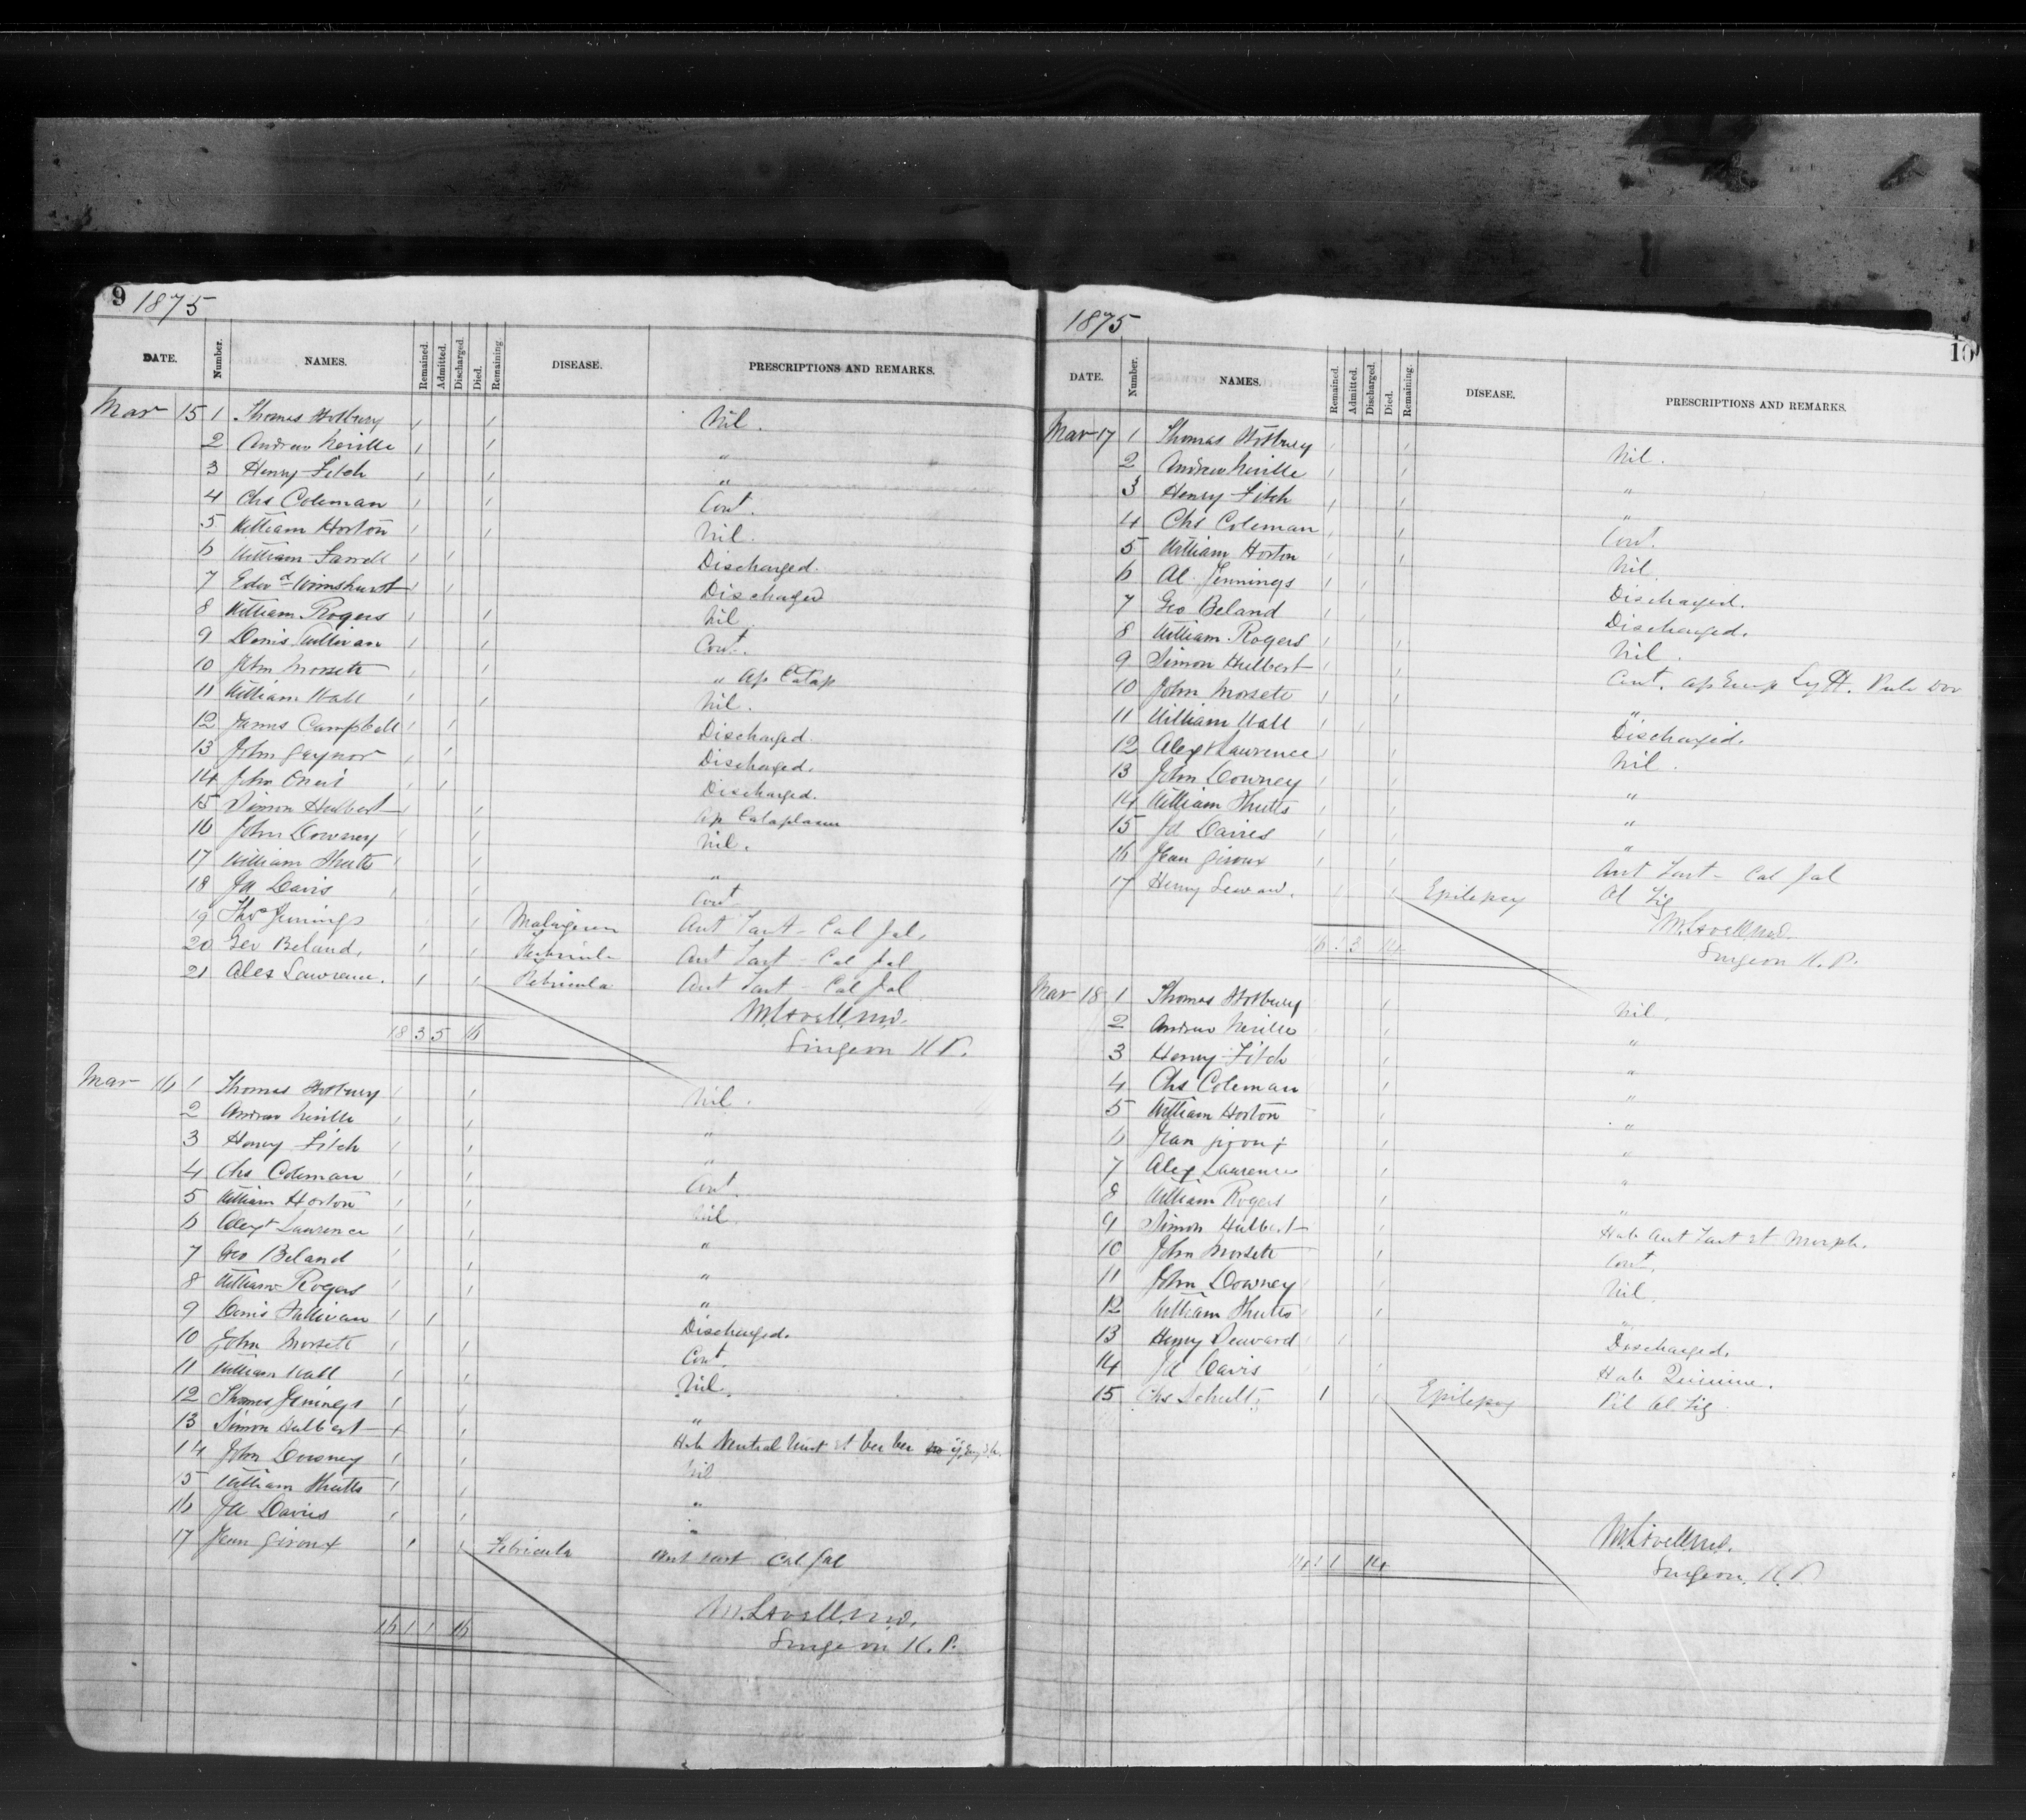 9 1875
DATE. Number. NAMES. Remained. Admitted. Discharged. Died. Remaining. DISEASE. PRESCRIPTIONS AND REMARKS.
Mar 15 1 Thomas Hotbury 1 1 Nil.
2 Andrew Neville 1 1 "
3 Henry Fitch 1 1 "
4 Chs Coleman 1 1 Cont.
5 William Horton 1 1 Nil.
6 William Farrell 1 1 Discharged.
7 Edwd Wimshurst 1 1 Discharged
8 William Rogers 1 1 Nil
9 Denis Sullivan 1 1 Cont.
10 John Morsete 1 1 " Ap Catap
11 William Wall 1 1 Nil.
12 James Campbell 1 1 Discharged.
13 John Gaynor 1 1 Discharged.
14 John 1 1 Discharged.
15 Simon Hulbert 1 1 Ap Cataplasm
16 John Downey 1 1 Nil.
17 William Shutts 1 1 "
18 Jd Davis 1 1 Cont
19 Thos Jennings 1 Ant Tart - Cal Jal.
20 Geo Beland. 1 1 Febricula Ant Tart - Cal Jal
21 Alex Lawrence. 1 1 Febricula Ant Tart - Cal Jal
M Lavell M.D.
18 3 5 16 Surgeon K.P.
Mar 16 1 Thomas Hotbury 1 1 Nil.
2 Andrew Neville 1 1 "
3 Henry Fitch 1 1 "
4 Chs Coleman 1 1 Cont.
5 William Horton 1 1 Nil.
6 Alext Lawrence 1 1 "
7 Geo Beland 1 1 "
8 William Rogers 1 1 "
9 Denis Sullivan 1 1 Discharged.
10 John Morsete 1 1 Cont.
11 William Wall 1 1 Nil.
12 Thomas Jenings 1 1 "
13 Simon Hulbert 1 1 Hab Neutral Mist et
14 John Downey 1 1 Nil
15 William Shutts 1 1 "
16 Jd Davis 1 1 "
17 Jean Giroux 1 1 Febricula Ant Tart Cal Jal
M. Lavell M.D.
16 1 1 16 Surgeon K.P.
1875 10
DATE. Number. NAMES. Remained. Admitted. Discharged. Died. Remaining. DISEASE. PRESCRIPTIONS AND REMARKS.
Mar 17 1 Thomas Hotbury 1 1 Nil.
2 Andrew Neville 1 1 "
3 Henry Fitch 1 1 "
4 Chs Coleman 1 1 Cont.
5 William Horton 1 1 Nil.
6 Al. Jennings 1 1 Discharged.
7 Geo Beland 1 1 Discharged.
8 William Rogers 1 1 Nil.
9 Simon Hulbert 1 1 Cont. Ap Emp Pulv Dov
10 John Morsete 1 1 "
11 William Wall 1 1 Discharged.
12 Alext Lawrence 1 1 Nil.
13 John Downey 1 1 "
14 William Shutts 1 1 "
15 Jd Davies 1 1 "
16 Jean Giroux 1 1 Ant Tart - Cal Jal
17 Henry Seward. 1 1 Epilepsy Ol Tig
M. Lavell M.D.
16 1 3 14 Surgeon K.P.
Mar 18 1 Thomas Hotbury 1 Nil.
2 Andrew Neville 1 "
3 Henry Fitch 1 "
4 Chs Coleman 1 "
5 William Horton 1 "
6 Jean Giroux 1 "
7 Alex Lawrence 1 "
8 William Rogers 1 "
9 Simon Hulbert 1 Hab Ant Tart et Morph.
10 John Morsete 1 Cont.
11 John Downey 1 Nil.
12 William Shutts 1 "
13 Henry Seward 1 Discharged.
14 Jd Davis 1 Hab Quinine.
15 Chs Schultz 1 1 Epilepsy Pil Ol. Tig
M Lavell M.D.
14 1 1 14 Surgeon. K.P.